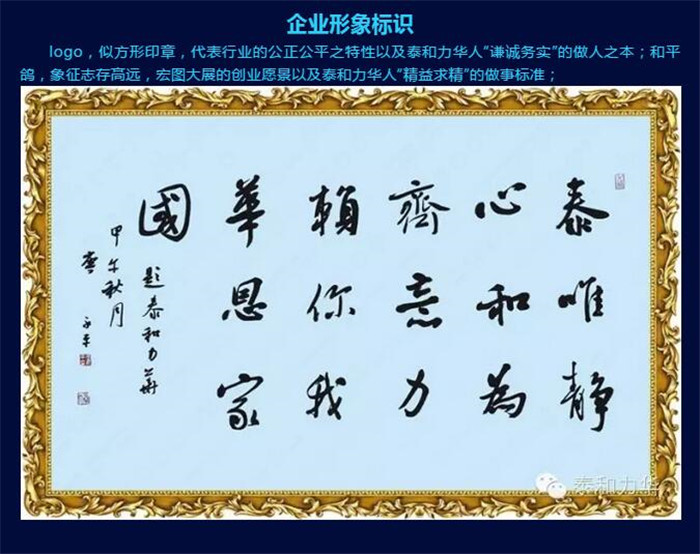 企业形象标识
logo，似方形印章，代表行业的公正公平之特性以及泰和力华人“谦诚务实”的做人之本；和平
鸽，象征志存高远，宏图大展的创业愿景以及泰和力华人“精益求精”的做事标准；
泰唯静
心和为
齊意力
賴你我
華恩家
國
题泰和力華
甲午秋月
泰和力华